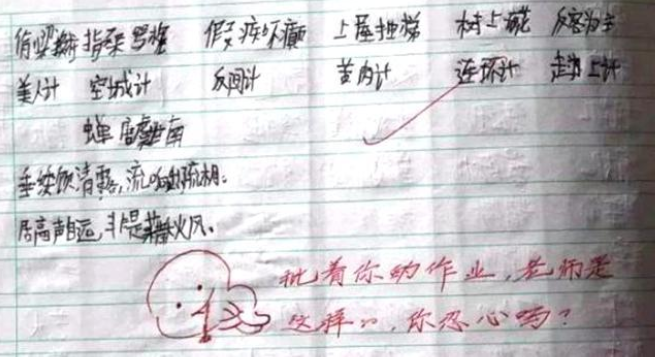 偷梁换柱 指桑骂槐 假痴不癫 上屋抽梯 树上开花 反客为主
美人计 空城计 反间计 苦肉计 连环计 走为上计
蝉
垂饮清露,流响出疏桐.
居高声自远,非是藉秋风.
批着你的作业,老师是
这样的,你忍心吗?